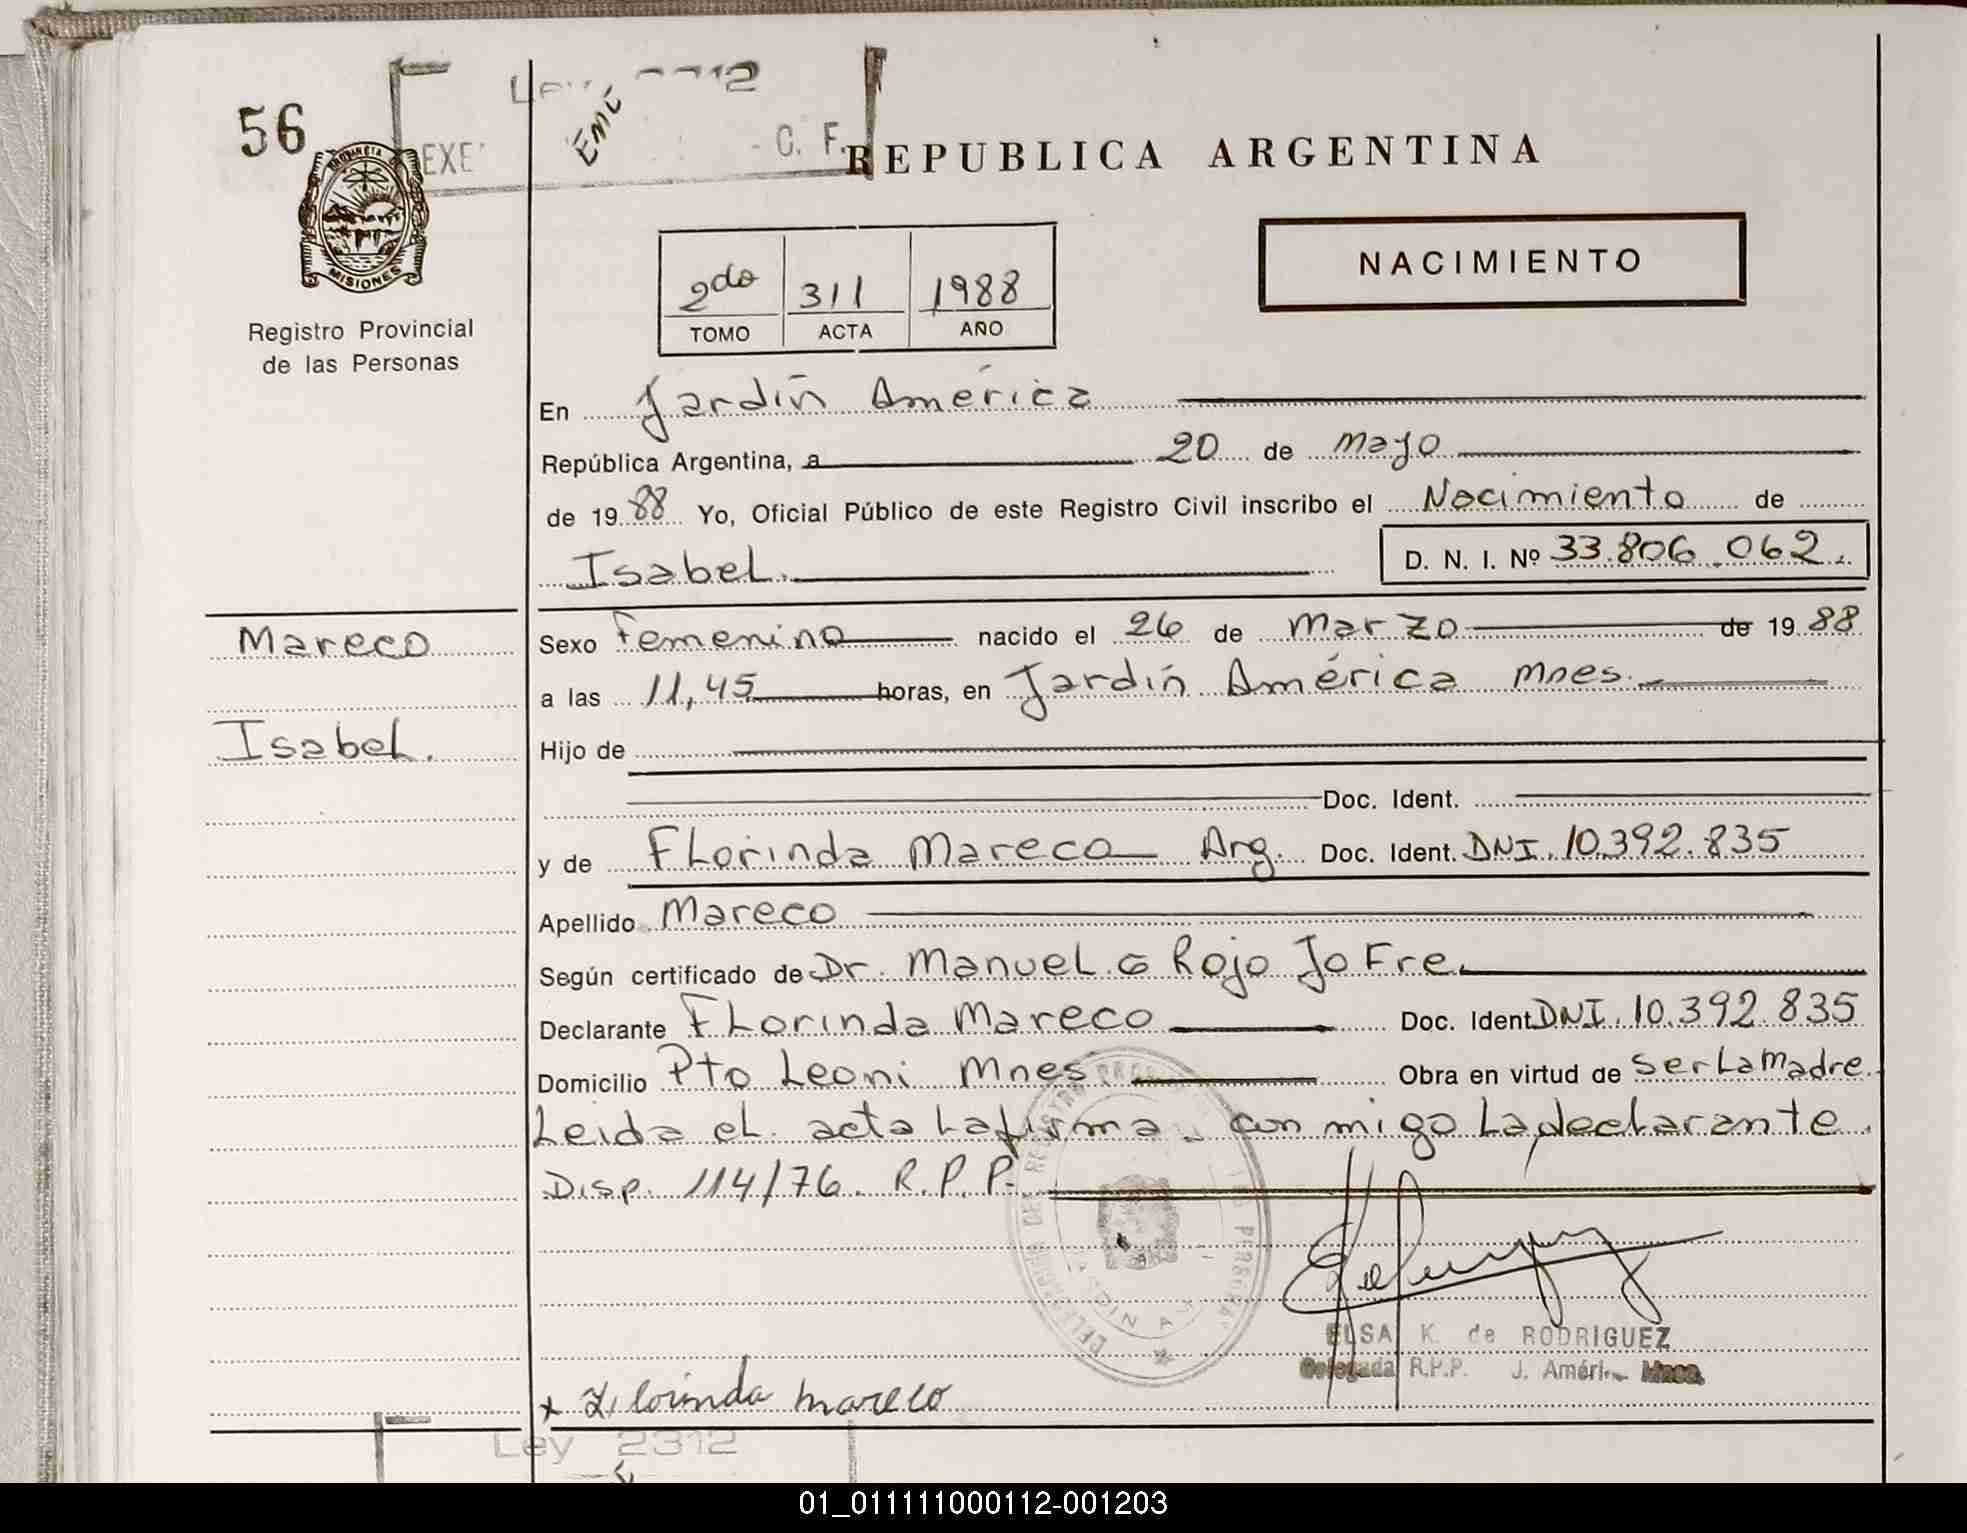 56
Ley 2312
EXE
C. F.
REPUBLICA ARGENTINA
PROVINCIA DE
MISIONES
Registro Provincial
de las Personas
NACIMIENTO
2do 311 1988
TOMO ACTA AÑO
En Jardín América
República Argentina, a 20 de mayo
de 1988 Yo, Oficial Público de este Registro Civil inscribo el Nacimiento de
Isabel. D. N. I. Nº 33.806.062.
Mareco
Isabel.
Sexo Femenino nacido el 26 de Marzo de 1988
a las 11,45 horas, en Jardín América Mnes.
Hijo de
Doc. Ident.
y de Florinda Mareco Arg. Doc. Ident. DNI. 10.392.835
Apellido Mareco
Según certificado de Dr. Manuel G Rojo Jofre.
Declarante Florinda Mareco Doc. Ident DNI. 10.392 835
Domicilio Pto Leoni Mnes Obra en virtud de ser La Madre.
Leida el acta la firma con migo La declarante.
Disp. 114/76. R.P.P.
ELSA K. de RODRIGUEZ
Delegada R.P.P. J. Améri Mnes.
x Florinda mareco
Ley 2312
01_011111000112-001203